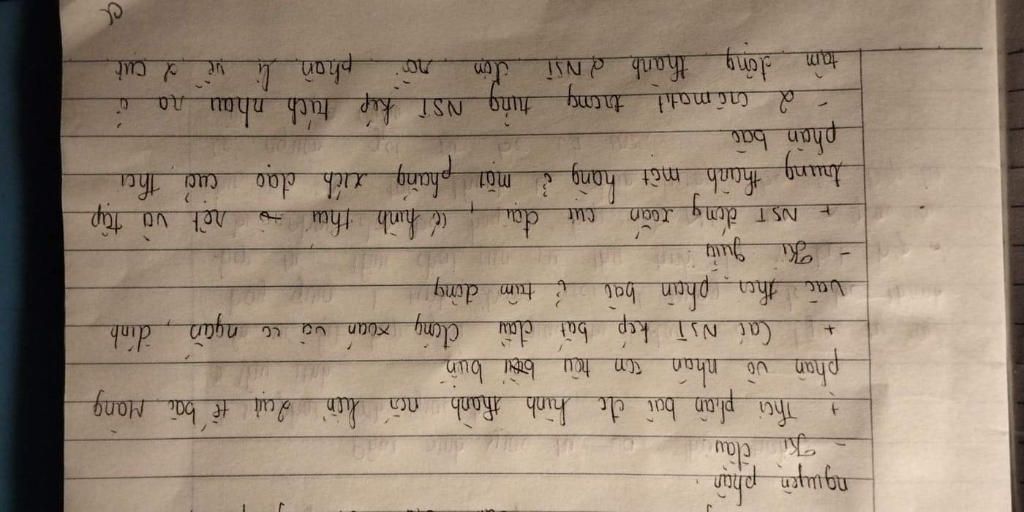 nguyên phân.
- Kì đầu
+ Thoi phân bài đc hình thành nối liền 2 cực tế bào Màng
phân và nhân con tiêu biến
+ Các NST kép bắt đầu đóng xoắn và co ngắn, đính
vào thoi phân bào ở tâm động
- Kì giữa
+ NST đóng xoắn cực đại, có hình thái rõ rệt và tập
trung thành một hàng ở mặt phẳng xích đạo của thoi
phân bào
- 2 crômatit trong từng NST kép tách nhau ra ở
tâm động thành 2 NST đơn rồi phân li về 2 cực